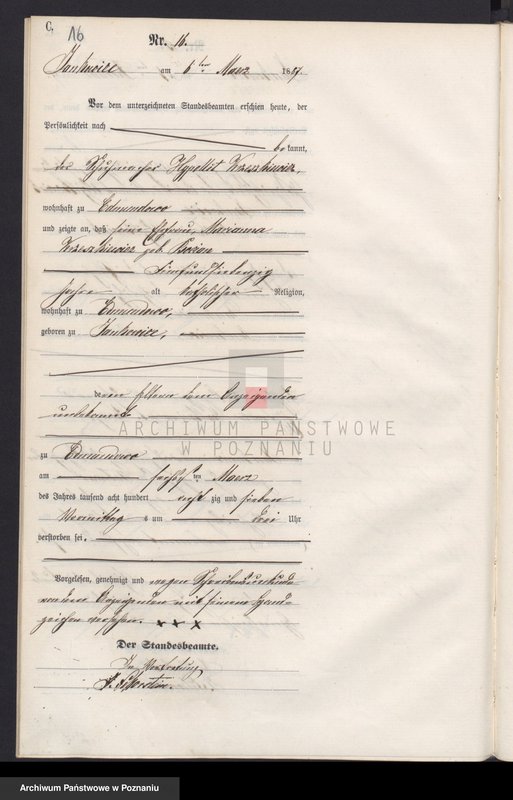 C.
16
Nr. 16.
Jankowice am 6ten Maerz 1887.
Vor dem unterzeichneten Standesbeamten erschien heute, der
Persönlichkeit nach
bekannt,
der Schuhmacher Hypolit Krzeszkiewicz,
wohnhaft zu Edmundowo
und zeigte an, daß seine Ehefrau, Marianna
Krzeszkiewicz geb.
Fünfundsiebenzig
Jahre alt katholischer Religion,
wohnhaft zu Edmundowo,
geboren zu Jankowice,
deren Eltern dem Anzeigenden
unbekannt
ARCHIWUM PAŃSTWOWE
W POZNANIU
zu Edmundowo
am sechsten Maerz
des Jahres tausend acht hundert acht zig und sieben
Vormittags um drei Uhr
verstorben sei.
Vorgelesen, genehmigt und wegen Schreibensunkunde
von dem Anzeigenden mit seinem Hand-
zeichen versehen. x x x
Der Standesbeamte.
In Vertretung
Archiwum Państwowe w Poznaniu